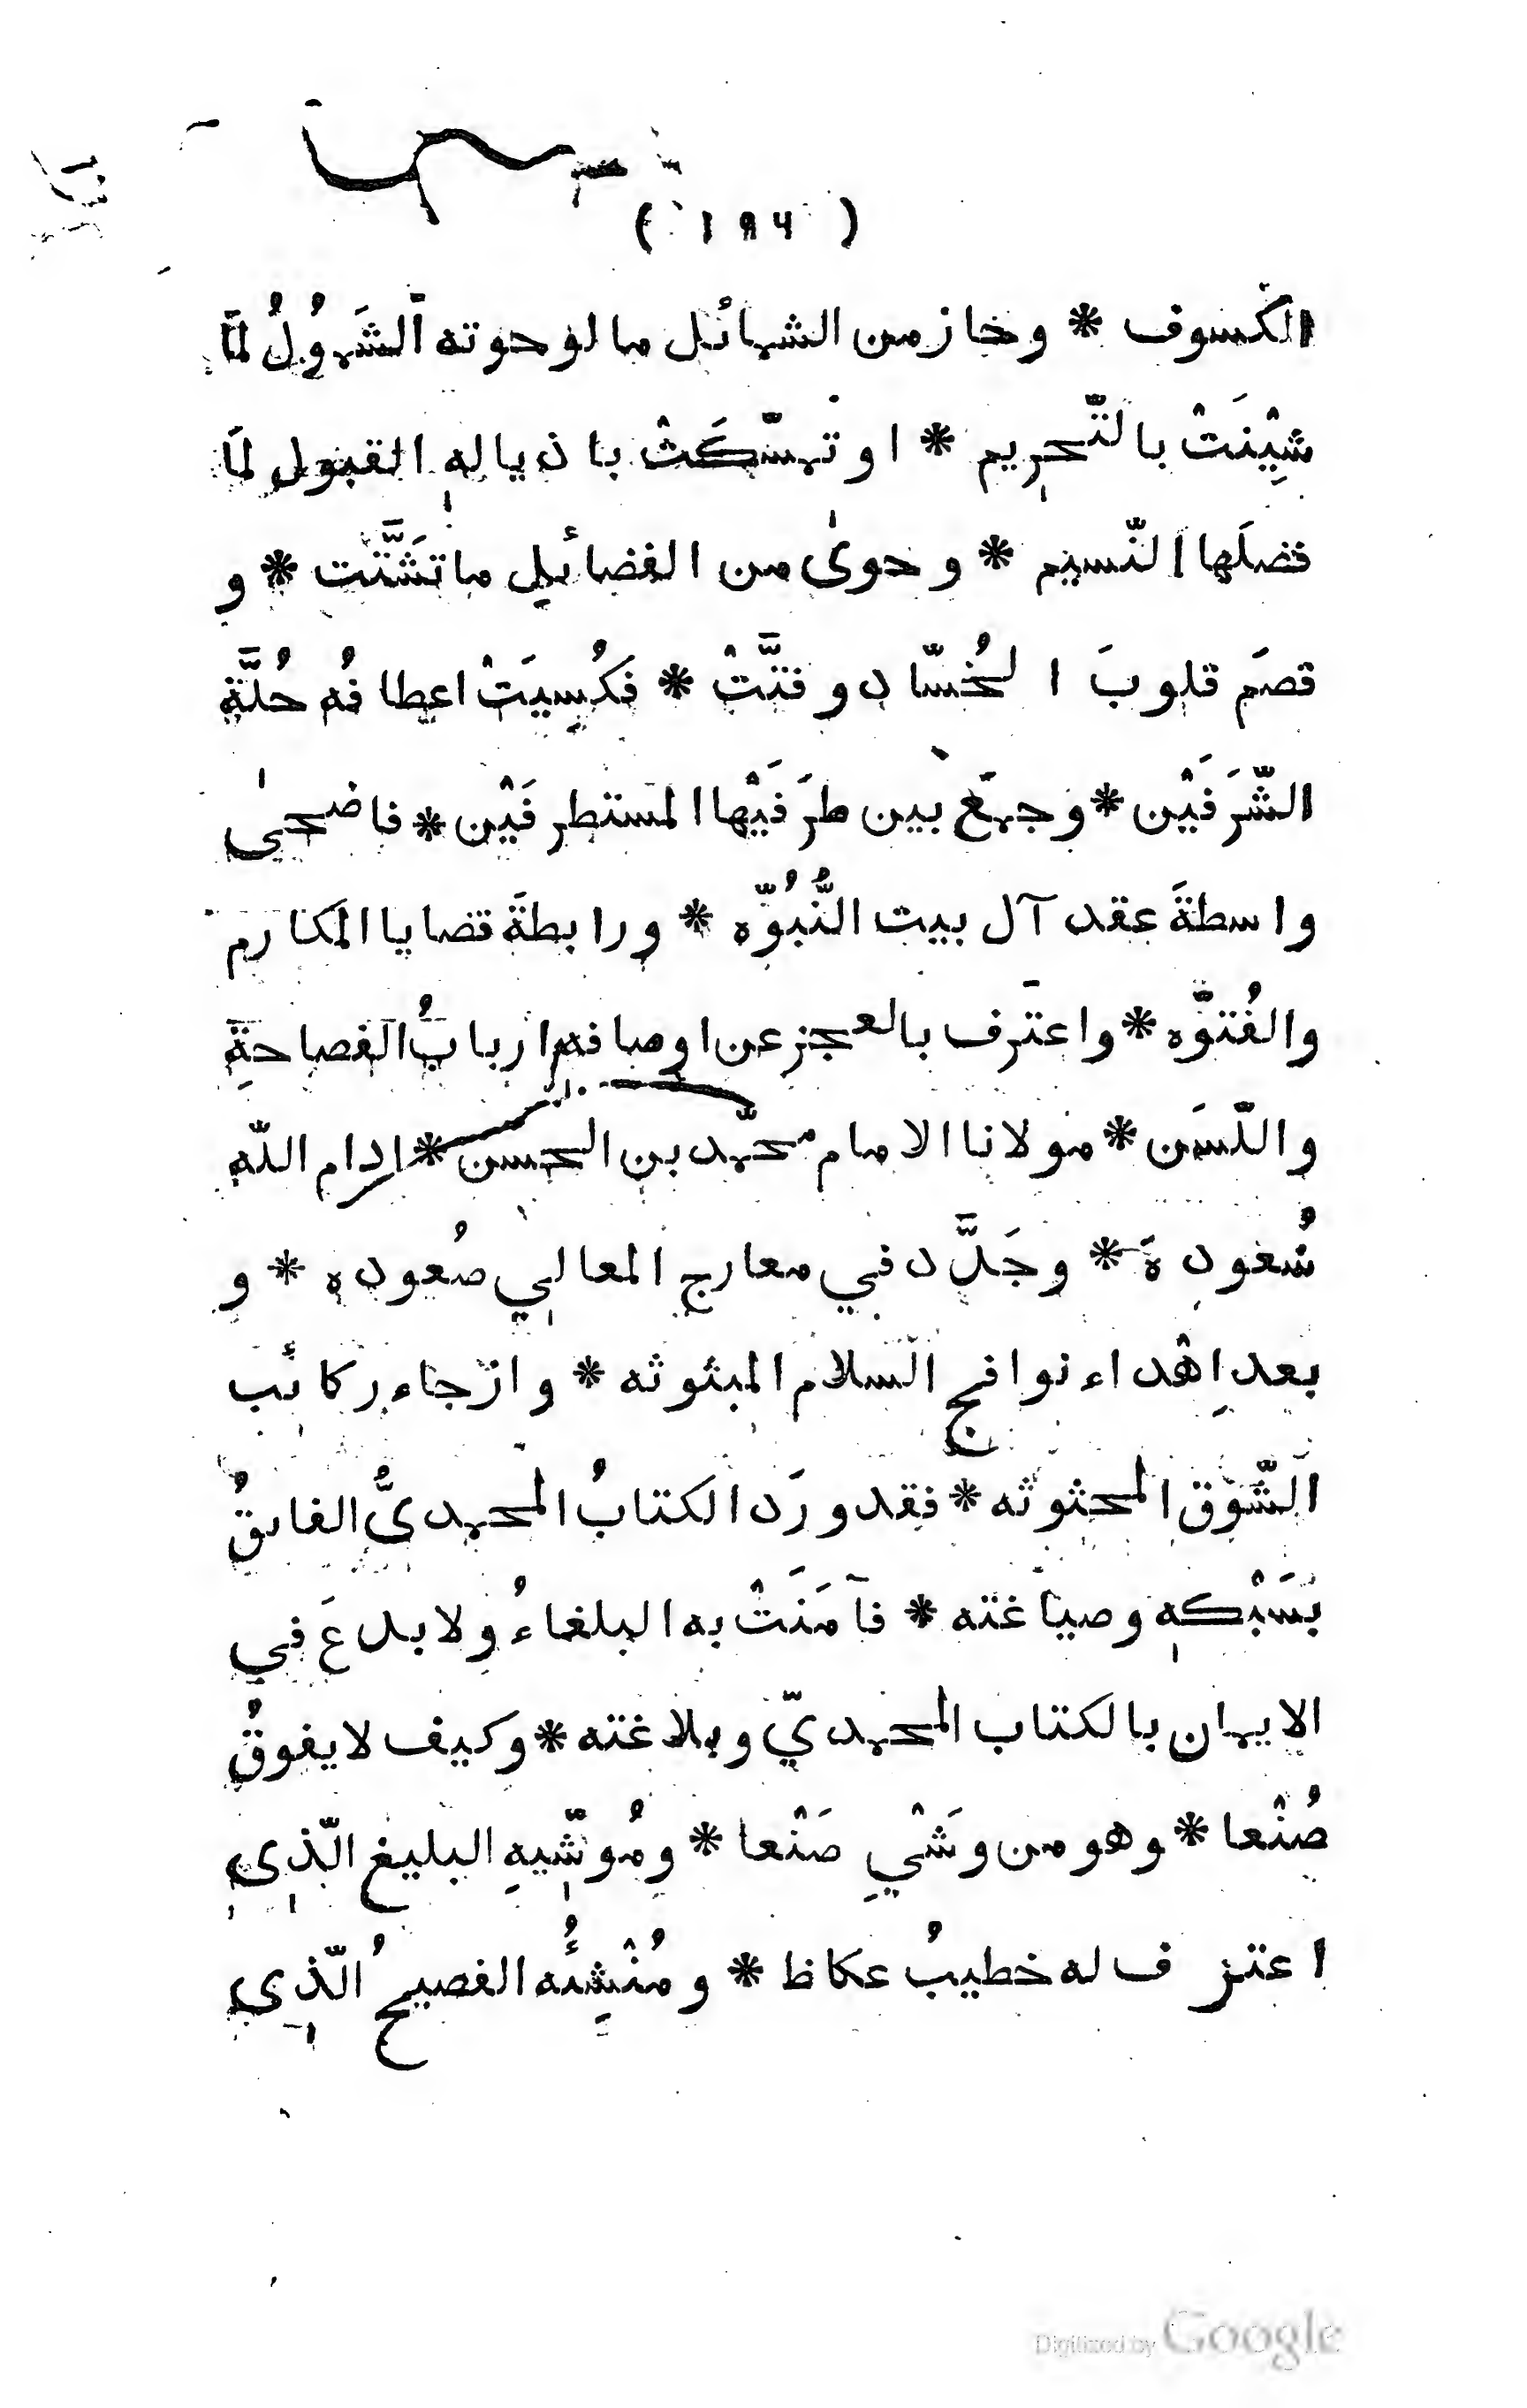 ( ١٩٤ )
الكسوف * وحاز من الشمائل ما لو حوته الشَمُوُلُ لمَّا
شِيْنَتْ بالتّحريم * او تمسّكَتْ باذياله القبول لمَا
فضلَها النّسيم * وحوىٰ من الفضائل ما تَشَتَّتت * و
قصَم قلوبَ الحُسّاد وفتَّتْ * فكُسِيَتْ اعطافُه حُلَّةَ
الشّرَفَيْن * وجمَع بين طرَفَيْها المستطرفَيْن * فاضحىٰ
واسطةَ عقد آل بيت النُّبُوّه * ورابطةَ قضايا المكارم
والفُتوّه * واعترف بالعجز عن اوصافه اربابُ الفصاحةِ
واللّسَن * مولانا الامام محمّد بن الحسن * ادام الله
سُعودهَ * وجَدَّد في معارج المعالي صُعوده * و
بعد اِهْداء نوافج السلام المبثوثه * وازجاء ركائب
الشّوْق المحثوثه * فقد ورَد الكتابُ المحمدىُّ الفائقُ
بسَبْكه وصياغته * فآمَنَتْ به البلغاءُ ولا بدعَ في
الايمان بالكتاب المحمديّ وبلاغته * وكيف لا يفوقُ
صُنْعا * وهو من وشْيِ صَنْعا * ومُوشّيهِ البليغ الّذي
اعترف له خطيبُ عكاظ * ومُنْشِئُه الفصيحُ الّذي
Digitized by Google